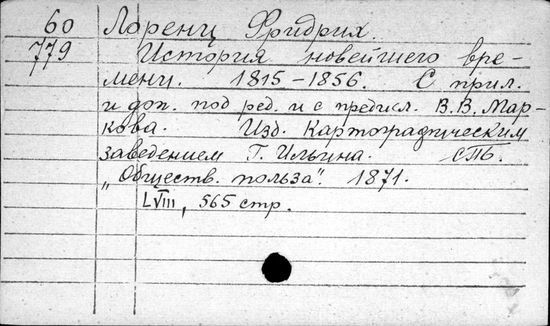 60 Лоренц Фридрих.
779 История новейшего вре-
мени. 1815-1856. С прил.
и доп. под ред. и с предисл. В.В. Мар-
кова. Изд. Картографическим
заведением Г. Ильина. СПБ.
„Обществ. польза". 1871.
LVIII, 565 стр.